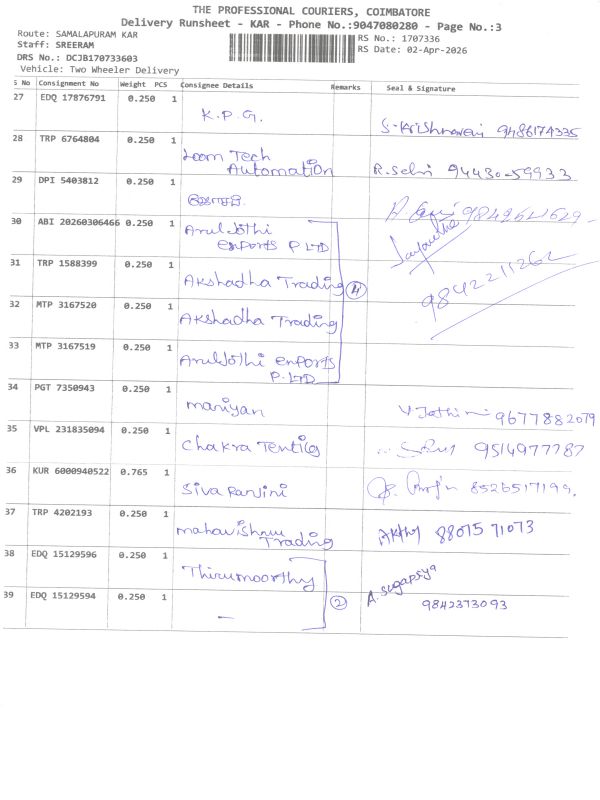 THE PROFESSIONAL COURIERS, COIMBATORE
Delivery Runsheet - KAR - Phone No.:9047080280 - Page No.:3
Route: SAMALAPURAM KAR
RS No.: 1707336
Staff: SREERAM
RS Date: 02-Apr-2026
DRS No.: DCJB170733603
Vehicle: Two Wheeler Delivery
S No Consignment No Weight PCS Consignee Details Remarks Seal & Signature
27 EDQ 17876791 0.250 1 K.P.G. 9486174335
28 TRP 6764804 0.250 1 Loom Tech
Automation R. Selvi 94430-59933
29 DPI 5403812 0.250 1
30 ABI 20260306466 0.250 1 Aruljothi
exports P LTD
31 TRP 1588399 0.250 1 Akshadha Trading 4 9842211262
32 MTP 3167520 0.250 1 Akshadha Trading
33 MTP 3167519 0.250 1 Aruljothi exports
P.LTD
34 PGT 7350943 0.250 1 maniyan V Jothimani 9677882079
35 VPL 231835094 0.250 1 Chakra 9514977787
36 KUR 6000940522 0.765 1 Siva Ranjini 8526517199
37 TRP 4202193 0.250 1 mahavishnu
Trading 88075 71073
38 EDQ 15129596 0.250 1 Thirumoorthy
39 EDQ 15129594 0.250 1 — 2 A. sugapriya
9842373093